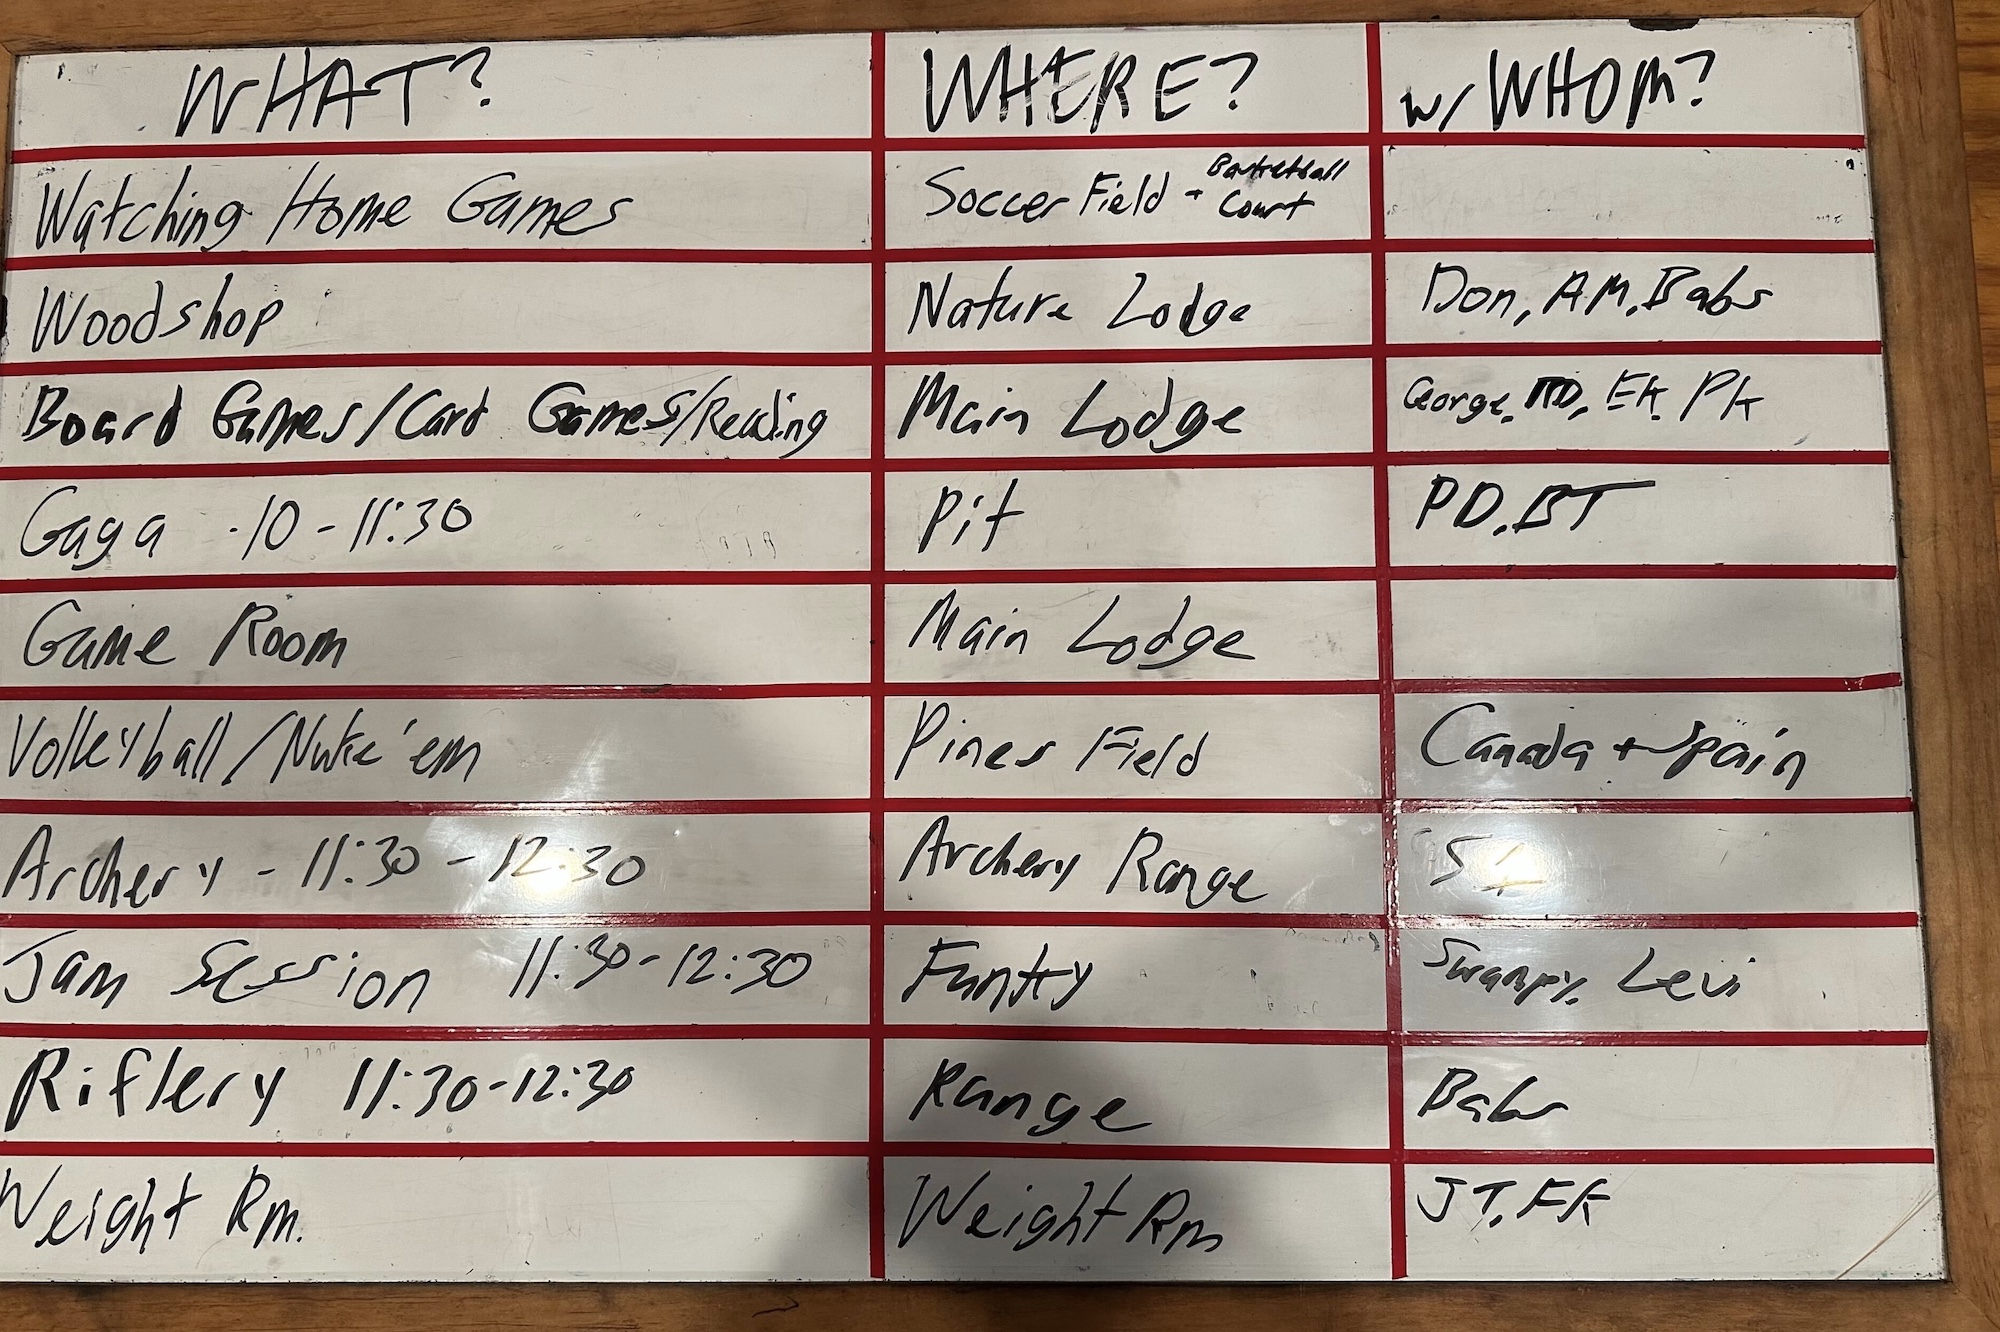 WHAT? WHERE? w/ WHOM?
Watching Home Games Soccer Field + Basketball Court
Woodshop Nature Lodge Don, AM, Babs
Board Games/Card Games/Reading Main Lodge George, EK, PK
Gaga -10-11:30 Pit PD, BT
Game Room Main Lodge
Volleyball/Nuke'em Pines Field Canada + Spain
Archery - 11:30 - 12:30 Archery Range
Jam Session 11:30-12:30 Funky Swampy, Levi
Riflery 11:30-12:30 Range Babs
Weight Rm. Weight Rm JT, FK